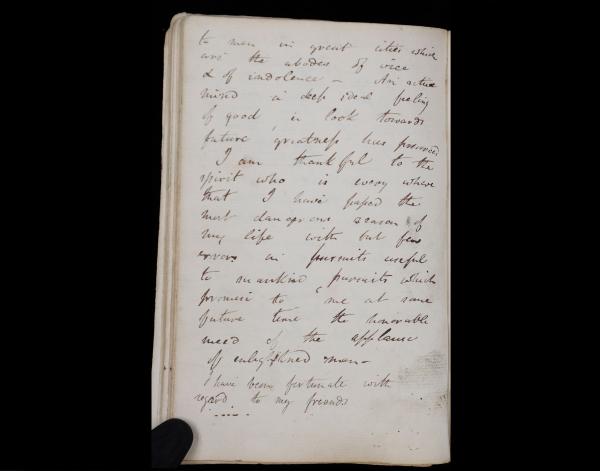 to men in great cities which
are the abodes of vice
& of indolence – An active
mind a deep ideal feeling
of good, a look towards
future greatness has preserved
I am thankful to the
spirit who is every where
that I have passed the
most dangerous season of
my life with but few
errors in pursuits useful
to mankind, pursuits which
promise to me at some
future time the honorable
meed of the applause
of enlightned men –
I have been fortunate with
regard to my friends